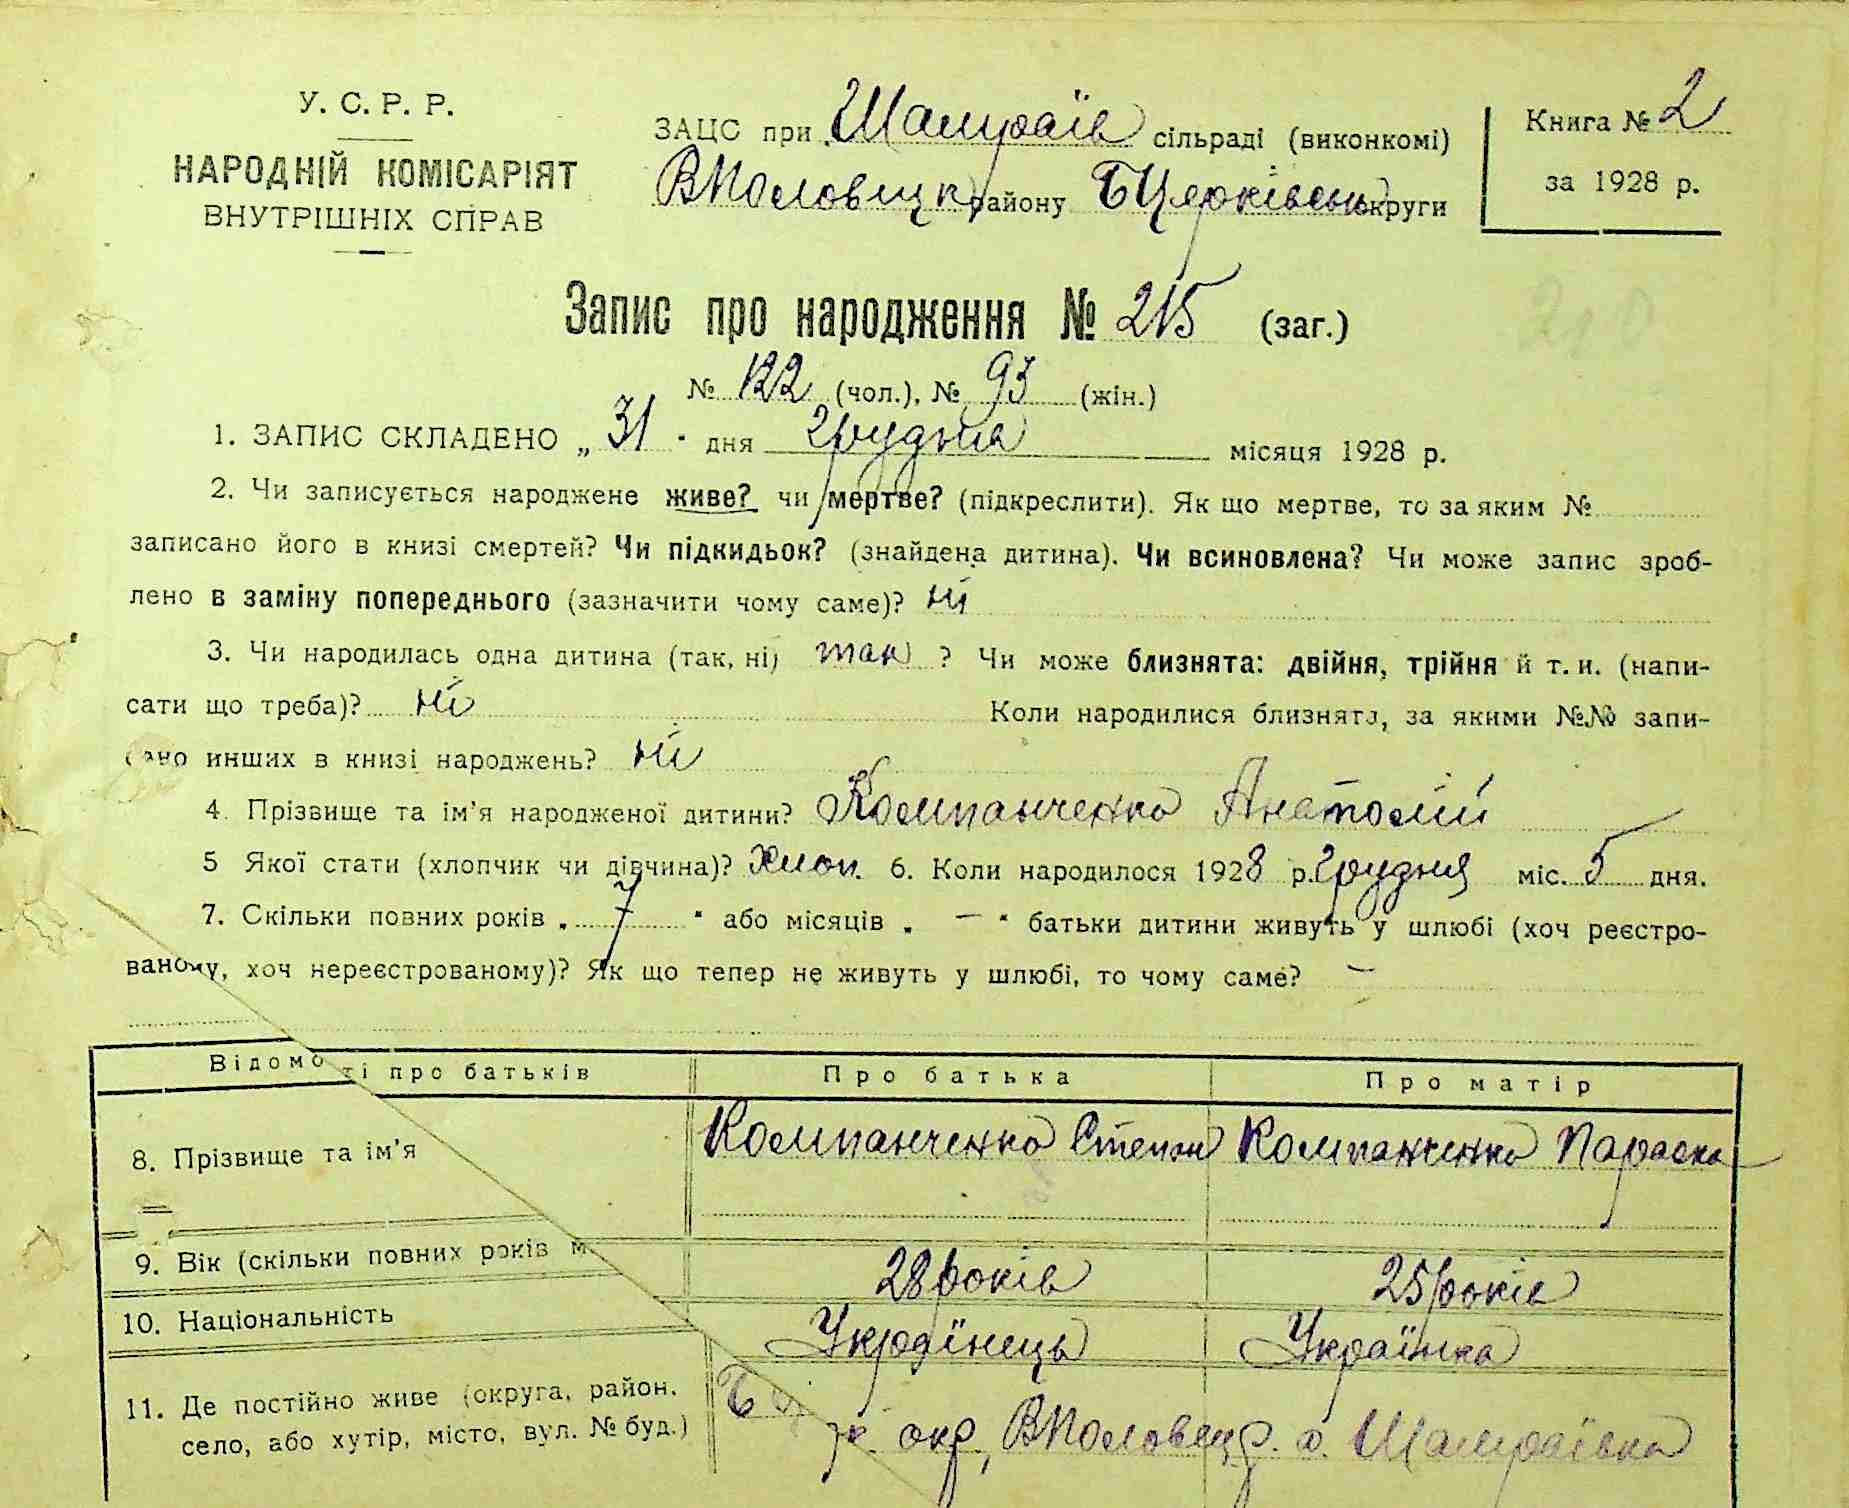 У. С. Р. Р.
НАРОДНІЙ КОМІСАРІЯТ
ВНУТРІШНІХ СПРАВ
ЗАЦС при Шамраїв сільраді (виконкомі)
ВПоловецьк району БЦерківськ округи
Книга № 2
за 1928 р.
Запис про народження № 215 (заг.)
210
№ 122 (чол.), № 93 (жін.)
1. ЗАПИС СКЛАДЕНО „ 31 " дня грудня місяця 1928 р.
2. Чи записується народжене живе? чи мертве? (підкреслити). Як що мертве, то за яким №
записано його в книзі смертей? Чи підкидьок? (знайдена дитина). Чи всиновлена? Чи може запис зроб-
лено в заміну попереднього (зазначити чому саме)? ні
3. Чи народилась одна дитина (так, ні) так ? Чи може близнята: двійня, трійня й т. и. (напи-
сати що треба)? ні Коли народилися близнята, за якими №№ запи-
сано инших в книзі народжень? ні
4. Прізвище та ім'я народженої дитини? Компанченко Анатолій
5 Якої стати (хлопчик чи дівчина)? Хлоп. 6. Коли народилося 1928 р. грудня міс. 5 дня.
7. Скільки повних років „ 7 " або місяців „ — " батьки дитини живуть у шлюбі (хоч реєстро-
ваному, хоч нереєстрованому)? Як що тепер не живуть у шлюбі, то чому саме? —
Відомо ті про батьків Про батька Про матір
8. Прізвище та ім'я Компанченко Степан Компанченко Параска
9. Вік (скільки повних років м. 28 років 25 років
10. Національність Українець Українка
11. Де постійно живе (округа, район,
село, або хутір, місто, вул. № буд.) окр, ВПоловец р. с. Шамраївка